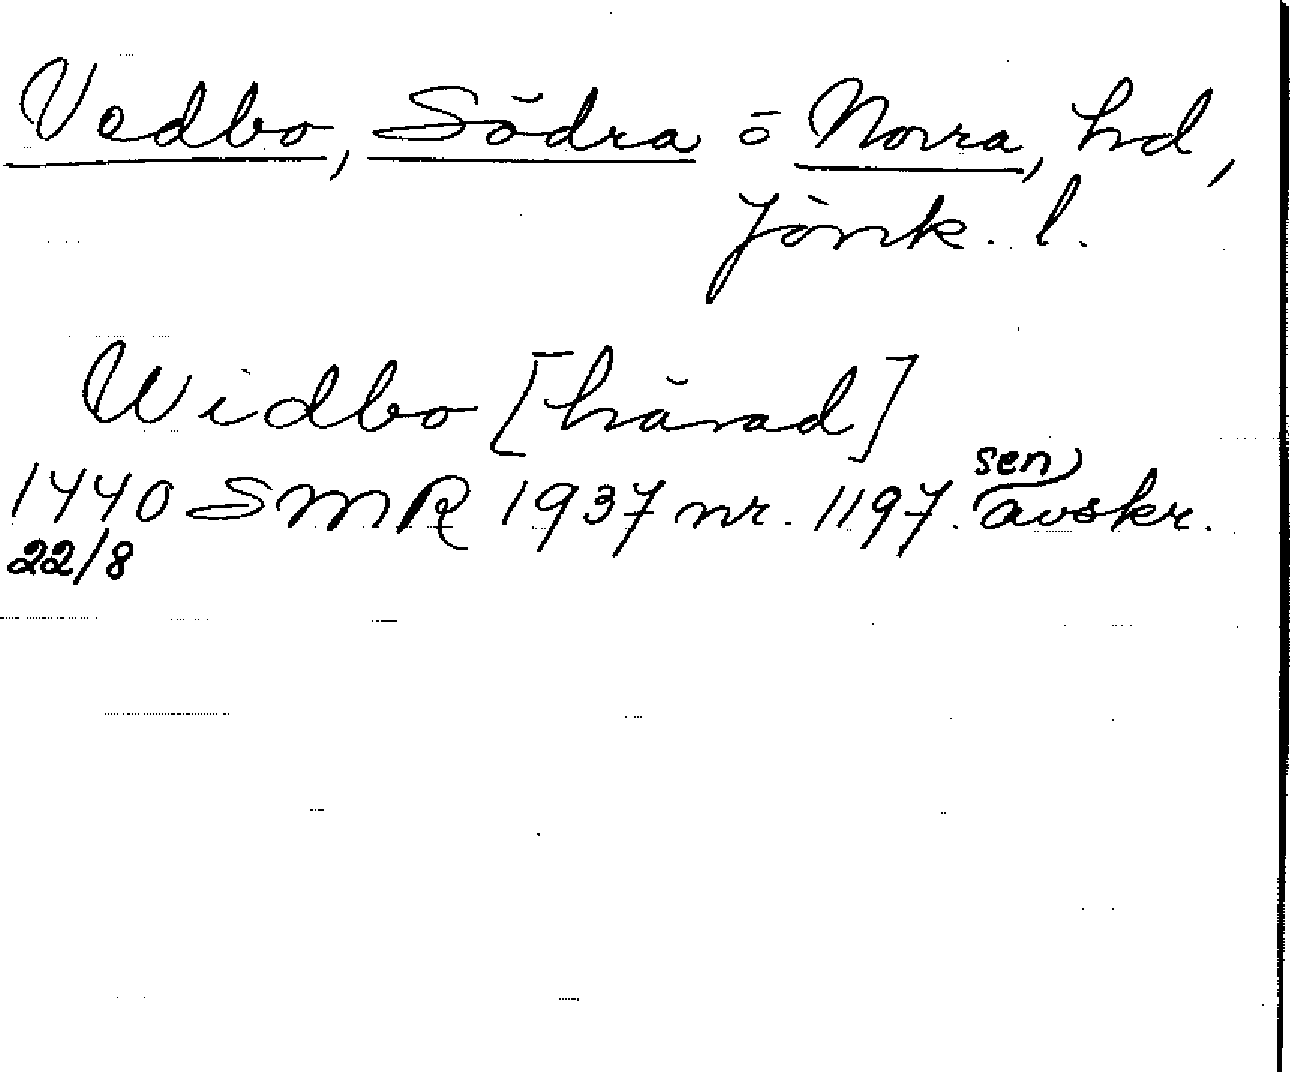 Vedbo, Södra o Norra, hd,
Jönk. l.
Widbo [härad]
sen
1440 SMR 1937 nr. 1197. avskr.
22/8